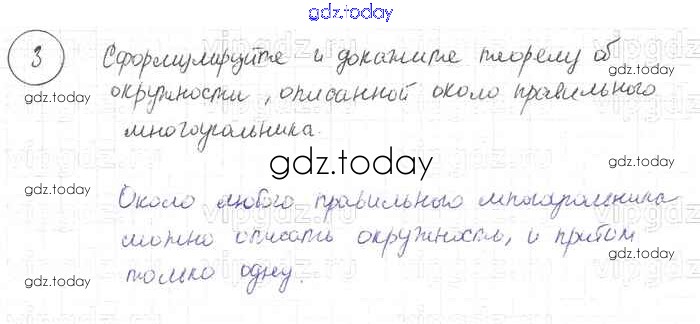 gdz.today
3 Сформулируйте и докажите теорему об
gdz.today
gdz.today окружности, описанной около правильного gdz.today
многоугольника.
gdz.today
Около любого правильного многоугольника
можно описать окружность, и притом
gdz.today только одну. gdz.today